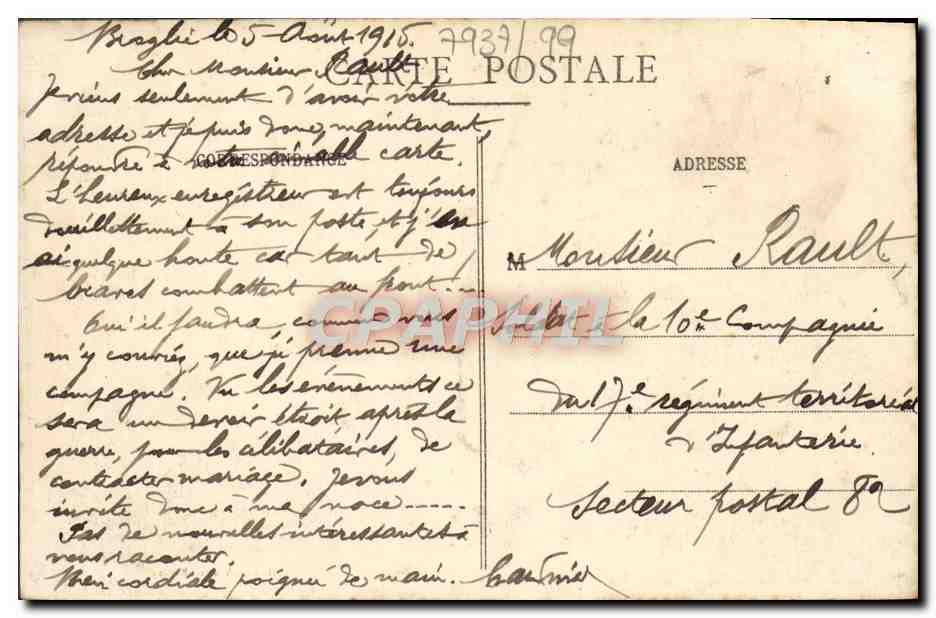 Broglie le 5 Août 1915.
7937/99
CARTE POSTALE
Cher Monsieur Rault
Je viens seulement d'avoir votre
adresse et je puis donc, maintenant,
répondre à votre carte.
CORRESPONDANCE
L'heureux enregistreur est toujours
douillettement à son poste et j'en
ai quelque honte car tant de
braves combattent au front...
Qu'il faudra, comme vous
m'y conviés, que je prenne une
compagne. Vu les événements ce
sera un devoir étroit, après la
guerre, pour les célibataires, de
contracter mariage. Je vous
invite donc à ma noce.....
Pas de nouvelles intéressantes à
vous raconter.
Bien cordiale poignée de main.
ADRESSE
M Monsieur Rault,
Soldat à la 10e Compagnie
du 17e régiment territorial
d'Infanterie
Secteur postal 82
CPAPHIL